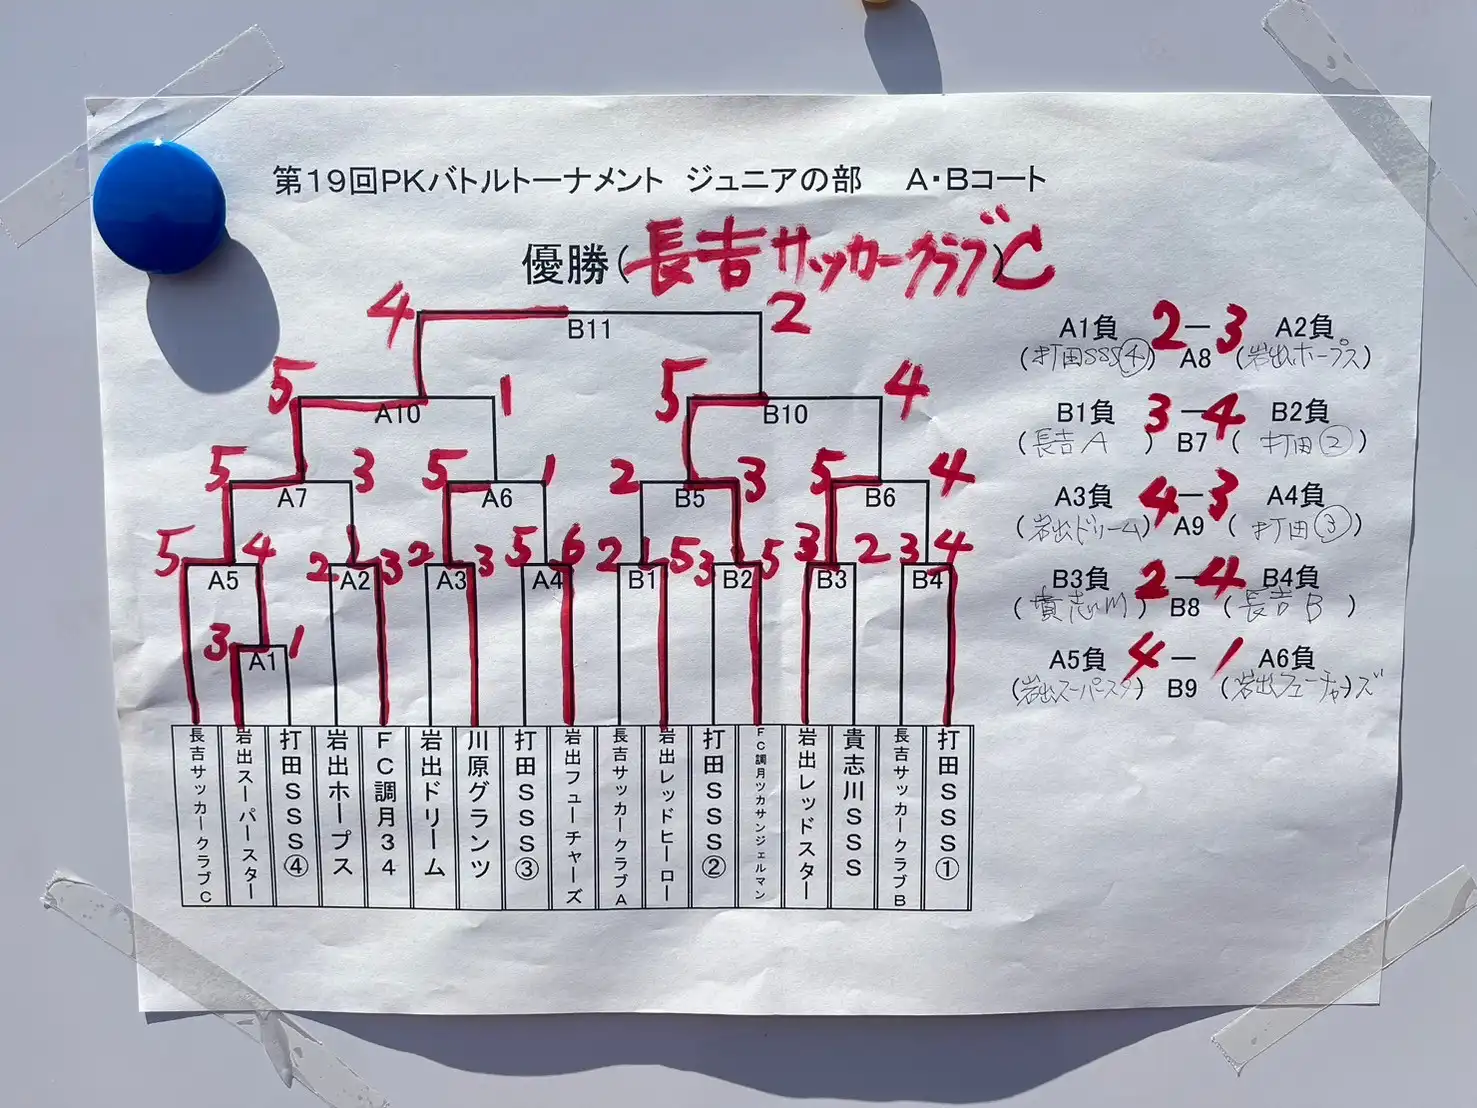 第19回PKバトルトーナメント ジュニアの部 A・Bコート
優勝(長吉サッカークラブC)
4 B11 2
5 A10 1 5 B10 4
5 A7 3 5 A6 1 2 B5 3 5 B6 4
5 A5 4 2 A2 3 2 A3 3 5 A4 6 2 B1 5 3 B2 5 3 B3 2 3 B4 4
3 A1 1
長吉サッカークラブC
岩出スーパースター
打田SSS④
岩出ホープス
FC調月34
岩出ドリーム
川原グランツ
打田SSS③
岩出フューチャーズ
長吉サッカークラブA
岩出レッドヒーロー
打田SSS②
FC調月ツカサンジェルマン
岩出レッドスター
貴志川SSS
長吉サッカークラブB
打田SSS①
A1負 2-3 A2負
(打田SSS④) A8 (岩出ホープス)
B1負 3-4 B2負
(長吉A) B7 (打田②)
A3負 4-3 A4負
(岩出ドリーム) A9 (打田③)
B3負 2-4 B4負
(貴志川) B8 (長吉B)
A5負 4-1 A6負
(岩出スーパースタ) B9 (岩出フューチャーズ